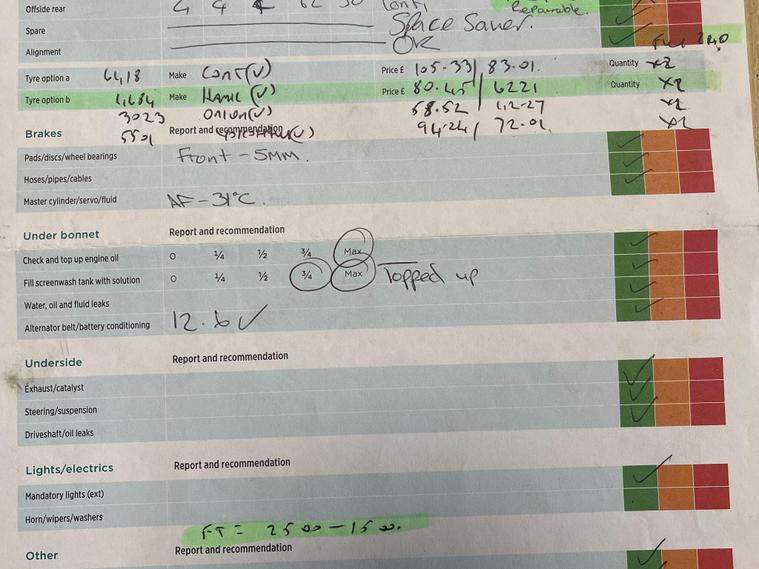 Offside rear 4 4 4 Conti Repairable.
Spare Space Saver.
Alignment OK
Tyre option a 6418 Make Cont(V) Price £ 105.33/83.01. Quantity x2
Tyre option b 4684 Make Hank(V) Price £ 80.45/6221 Quantity x2
3023 58.52/42-27 x2
5501 94.24/72.01. x2
Brakes Report and recommendation
Pads/discs/wheel bearings Front - 5mm.
Hoses/pipes/cables
Master cylinder/servo/fluid AF - 31°C.
Under bonnet Report and recommendation
Check and top up engine oil 0 ¼ ½ ¾ Max
Fill screenwash tank with solution 0 ¼ ½ ¾ Max Topped up
Water, oil and fluid leaks
Alternator belt/battery conditioning 12.6 ✓
Underside Report and recommendation
Exhaust/catalyst
Steering/suspension
Driveshaft/oil leaks
Lights/electrics Report and recommendation
Mandatory lights (ext)
Horn/wipers/washers
FT = 2500 - 1500.
Other Report and recommendation